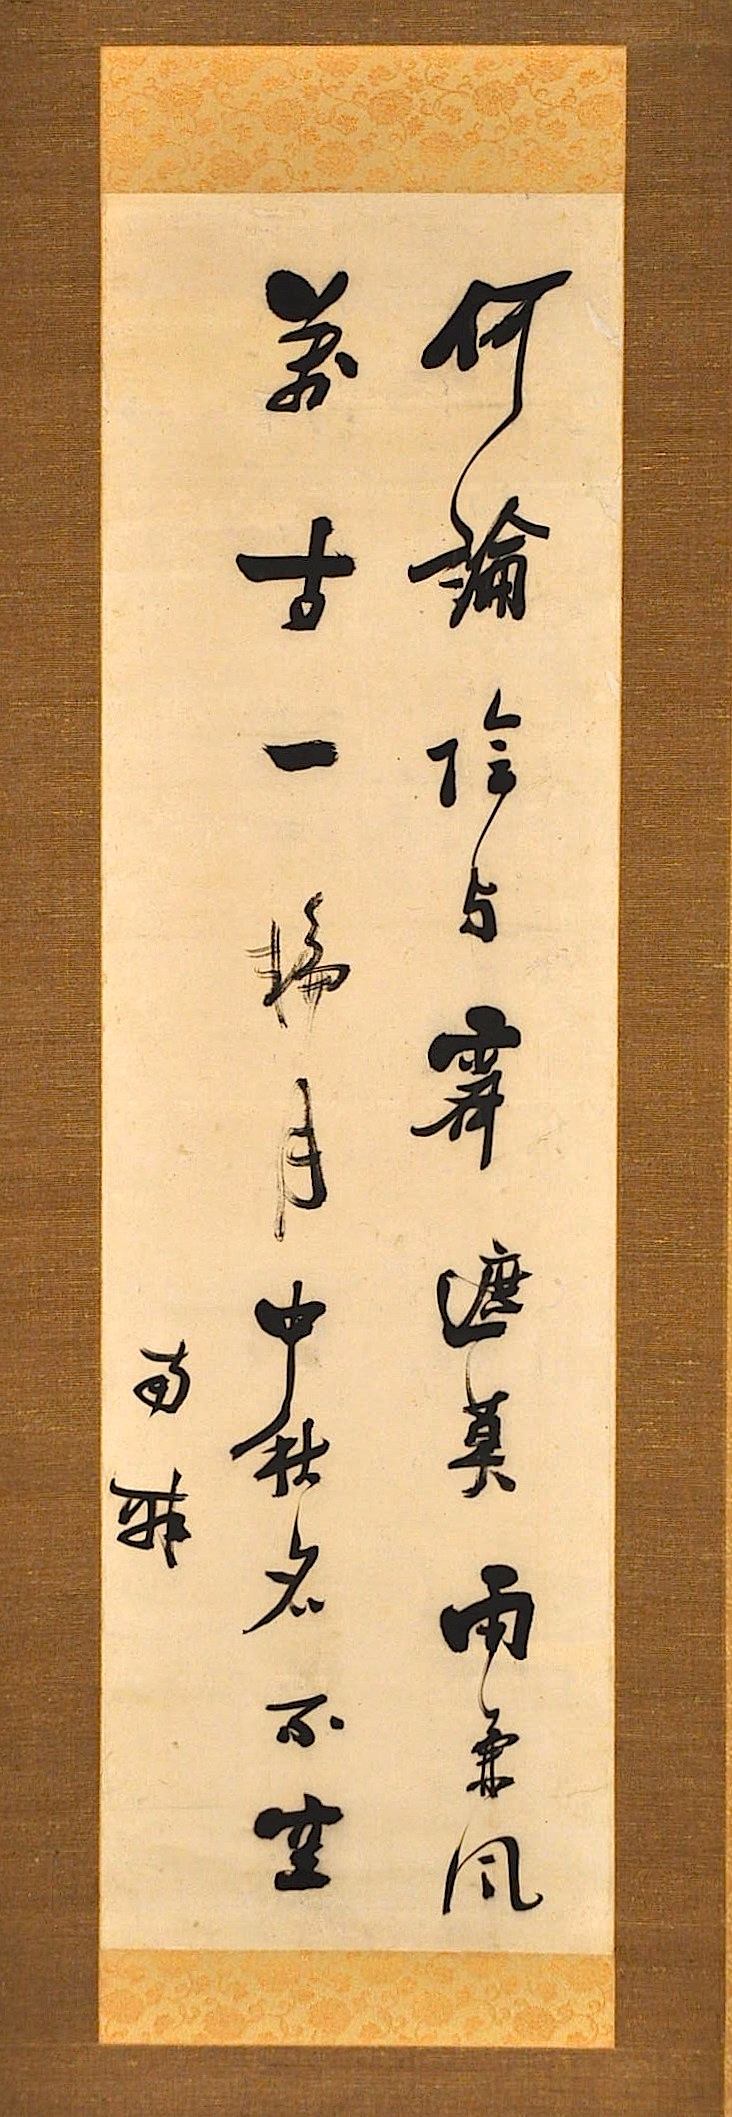 何論陰与霽遮莫雨兼風
萬古一輪月中秋名不空